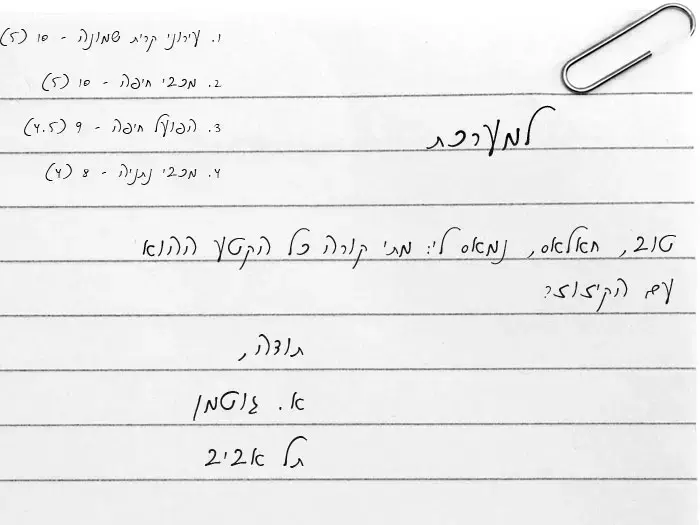 1. עירוני קרית שמונה - 10 (5)
2. מכבי חיפה - 10 (5)
3. הפועל חיפה - 9 (4.5)
4. מכבי נתניה - 8 (4)
למערכת
טוב, חאלאס, נמאס לי: מתי קורה כל הקטע ההוא
עם הקיזוז?
תודה,
א. גוטמן
תל אביב